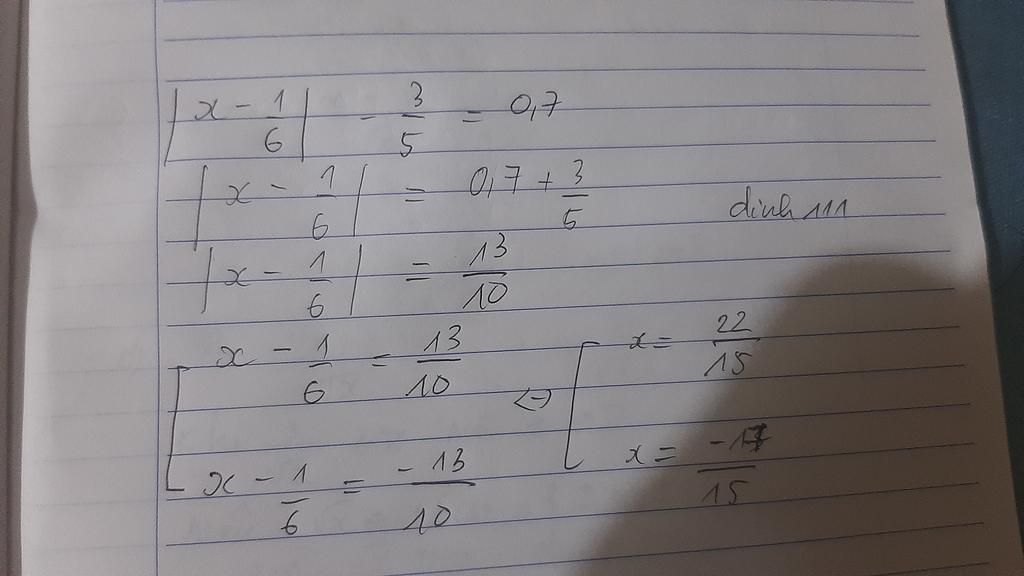 |x - 1/6| - 3/5 = 0,7
|x - 1/6| = 0,7 + 3/5
dinh 111
|x - 1/6| = 13/10
[ x - 1/6 = 13/10 <=> [ x = 22/15
x - 1/6 = -13/10 x = -17/15